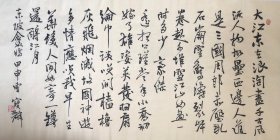 大江东去浪淘盡千古
风流人物故垒西边人道
是三國周郎赤壁亂
石崩雲驚濤裂岸
卷起千堆雪江山如畫一
時多少豪傑
遥想公瑾當年小喬初
嫁了雄姿英發羽扇
纶巾談笑間
灰飛烟滅故國神遊
多情應笑我早生華
髮人間如夢一尊
還酹江月
東坡念奴嬌 甲申